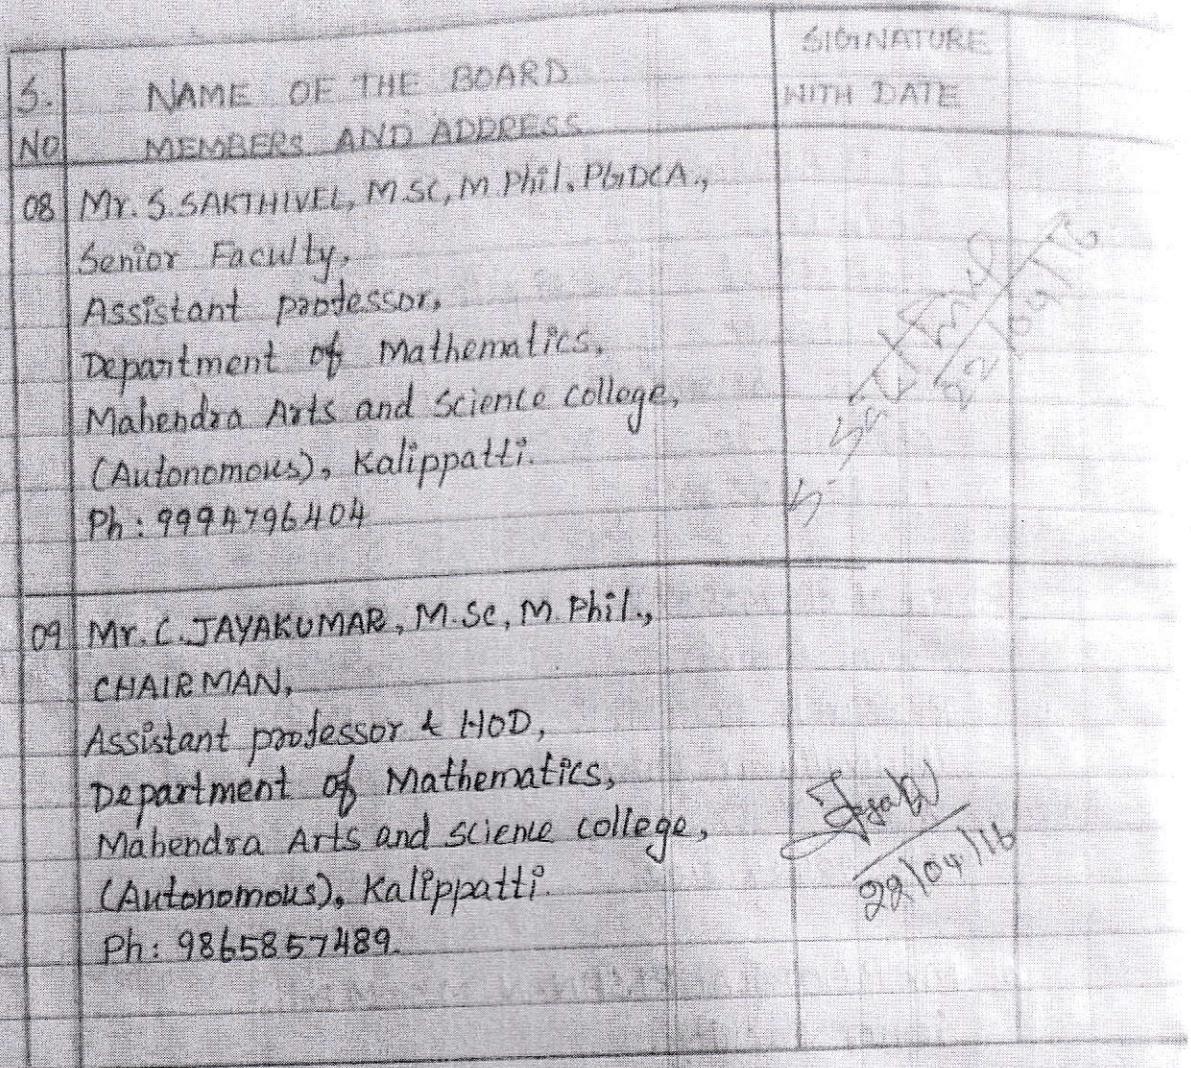 S. NO
NAME OF THE BOARD
MEMBERS AND ADDRESS
SIGNATURE
WITH DATE
08 Mr. S. SAKTHIVEL, M SC, M Phil, PGDCA.,
Senior Faculty,
Assistant professor,
Department of Mathematics,
Mahendra Arts and Science College,
(Autonomous), Kalippatti.
Ph : 9994796404
S. Sakthivel
22/04/16
09 Mr. C. JAYAKUMAR, M.Sc, M. Phil.,
CHAIRMAN,
Assistant professor & HOD,
Department of Mathematics,
Mahendra Arts and Science College,
(Autonomous), Kalippatti.
Ph: 9865857489.
22/04/16